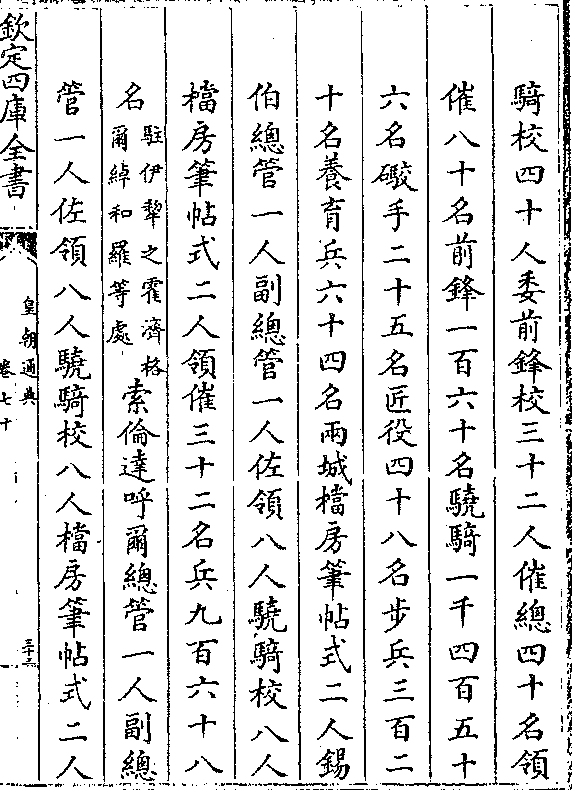 騎校四十人委前鋒校三十二人催總四十名領
催八十名前鋒一百六十名驍騎一千四百五十
六名礮手二十五名匠役四十八名步兵三百二
十名養育兵六十四名兩城檔房筆帖式二人錫
伯總管一人副總管一人佐領八人驍騎校八人
檔房筆帖式二人領催三十二名兵九百六十八
名駐伊犂之霍濟格爾綽和羅等處索倫達呼爾總管一人副總
管一人佐領八人驍騎校八人檔房筆帖式二人
欽定四庫全書
皇朝通典
卷七十
三十二